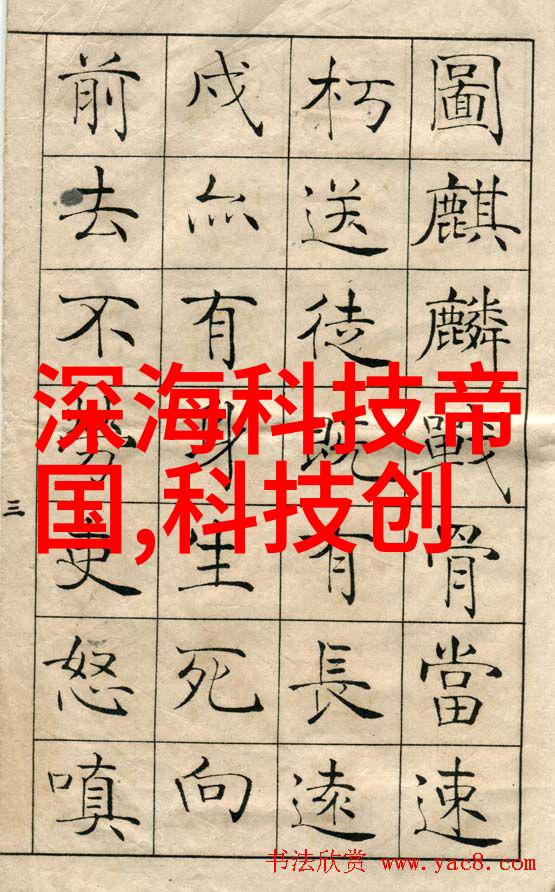 圖麒麟戰骨當速
朽送徒既有長遠
戍亦有身生死向
前去不勞吏怒嗔
三
深海科技帝
国,科技创
书法欣赏 www.yac8.com